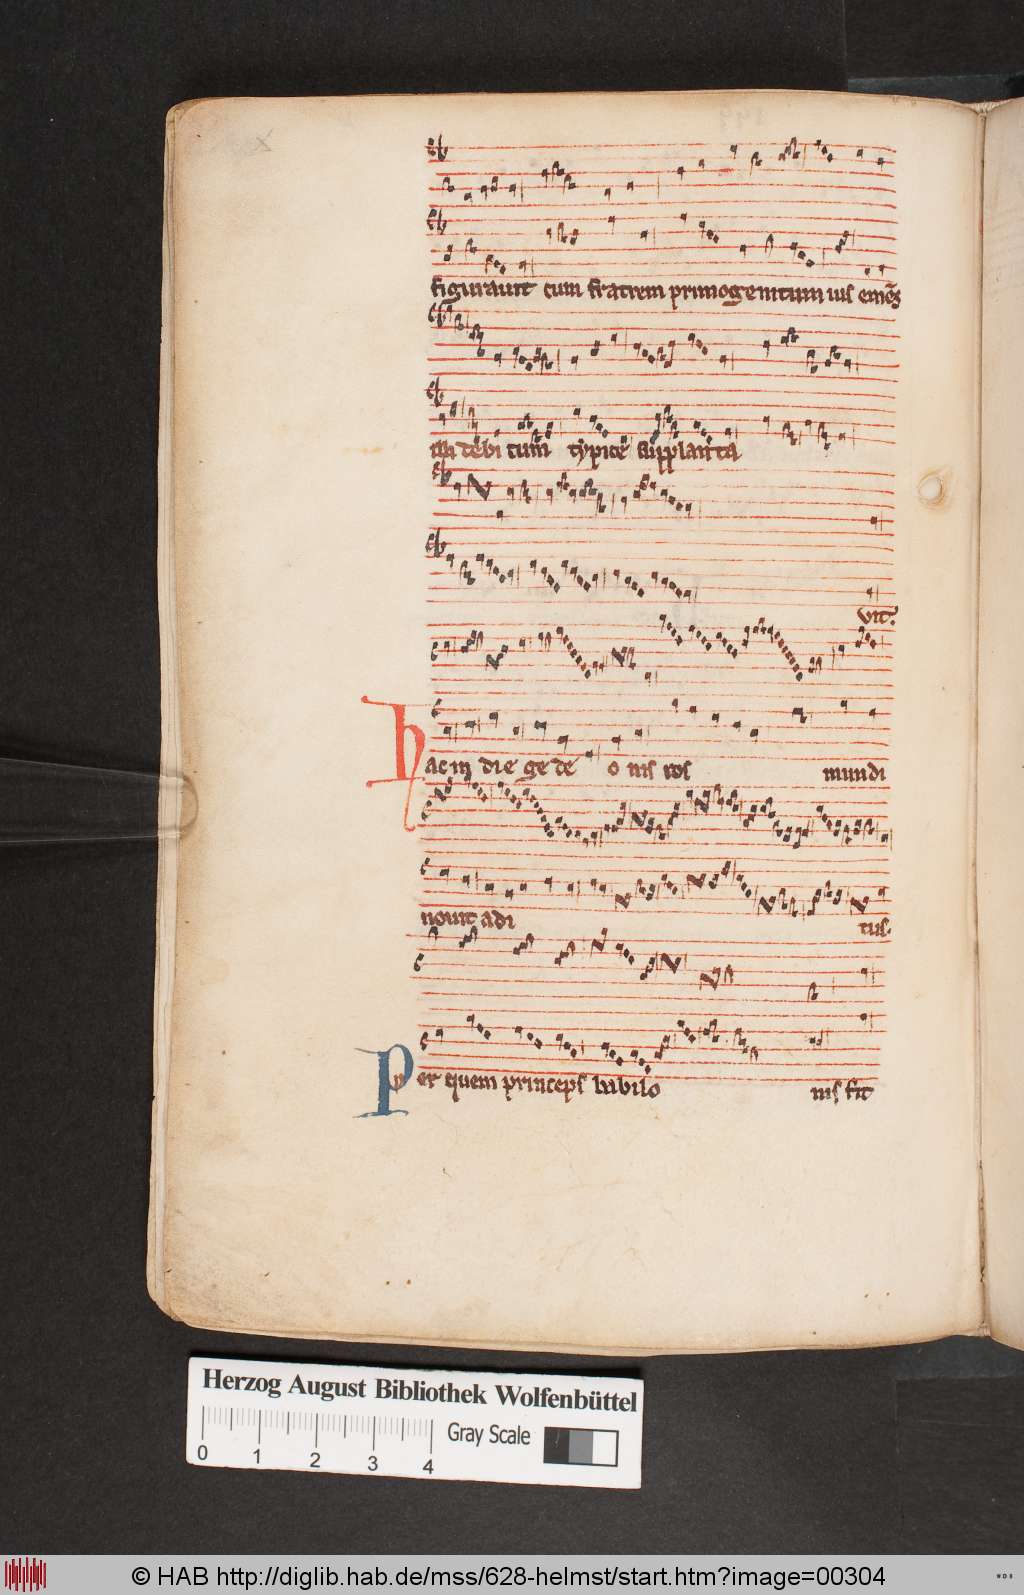 figurauit cum fratrem primogenitum ius emēs
illi debi tum typice supplanta
vit.
Hac in die gede o nis ros mundi
nouit adi tus.
Per quem princeps babilo nis fit
Herzog August Bibliothek Wolfenbüttel
Gray Scale
0 1 2 3 4
© HAB http://diglib.hab.de/mss/628-helmst/start.htm?image=00304